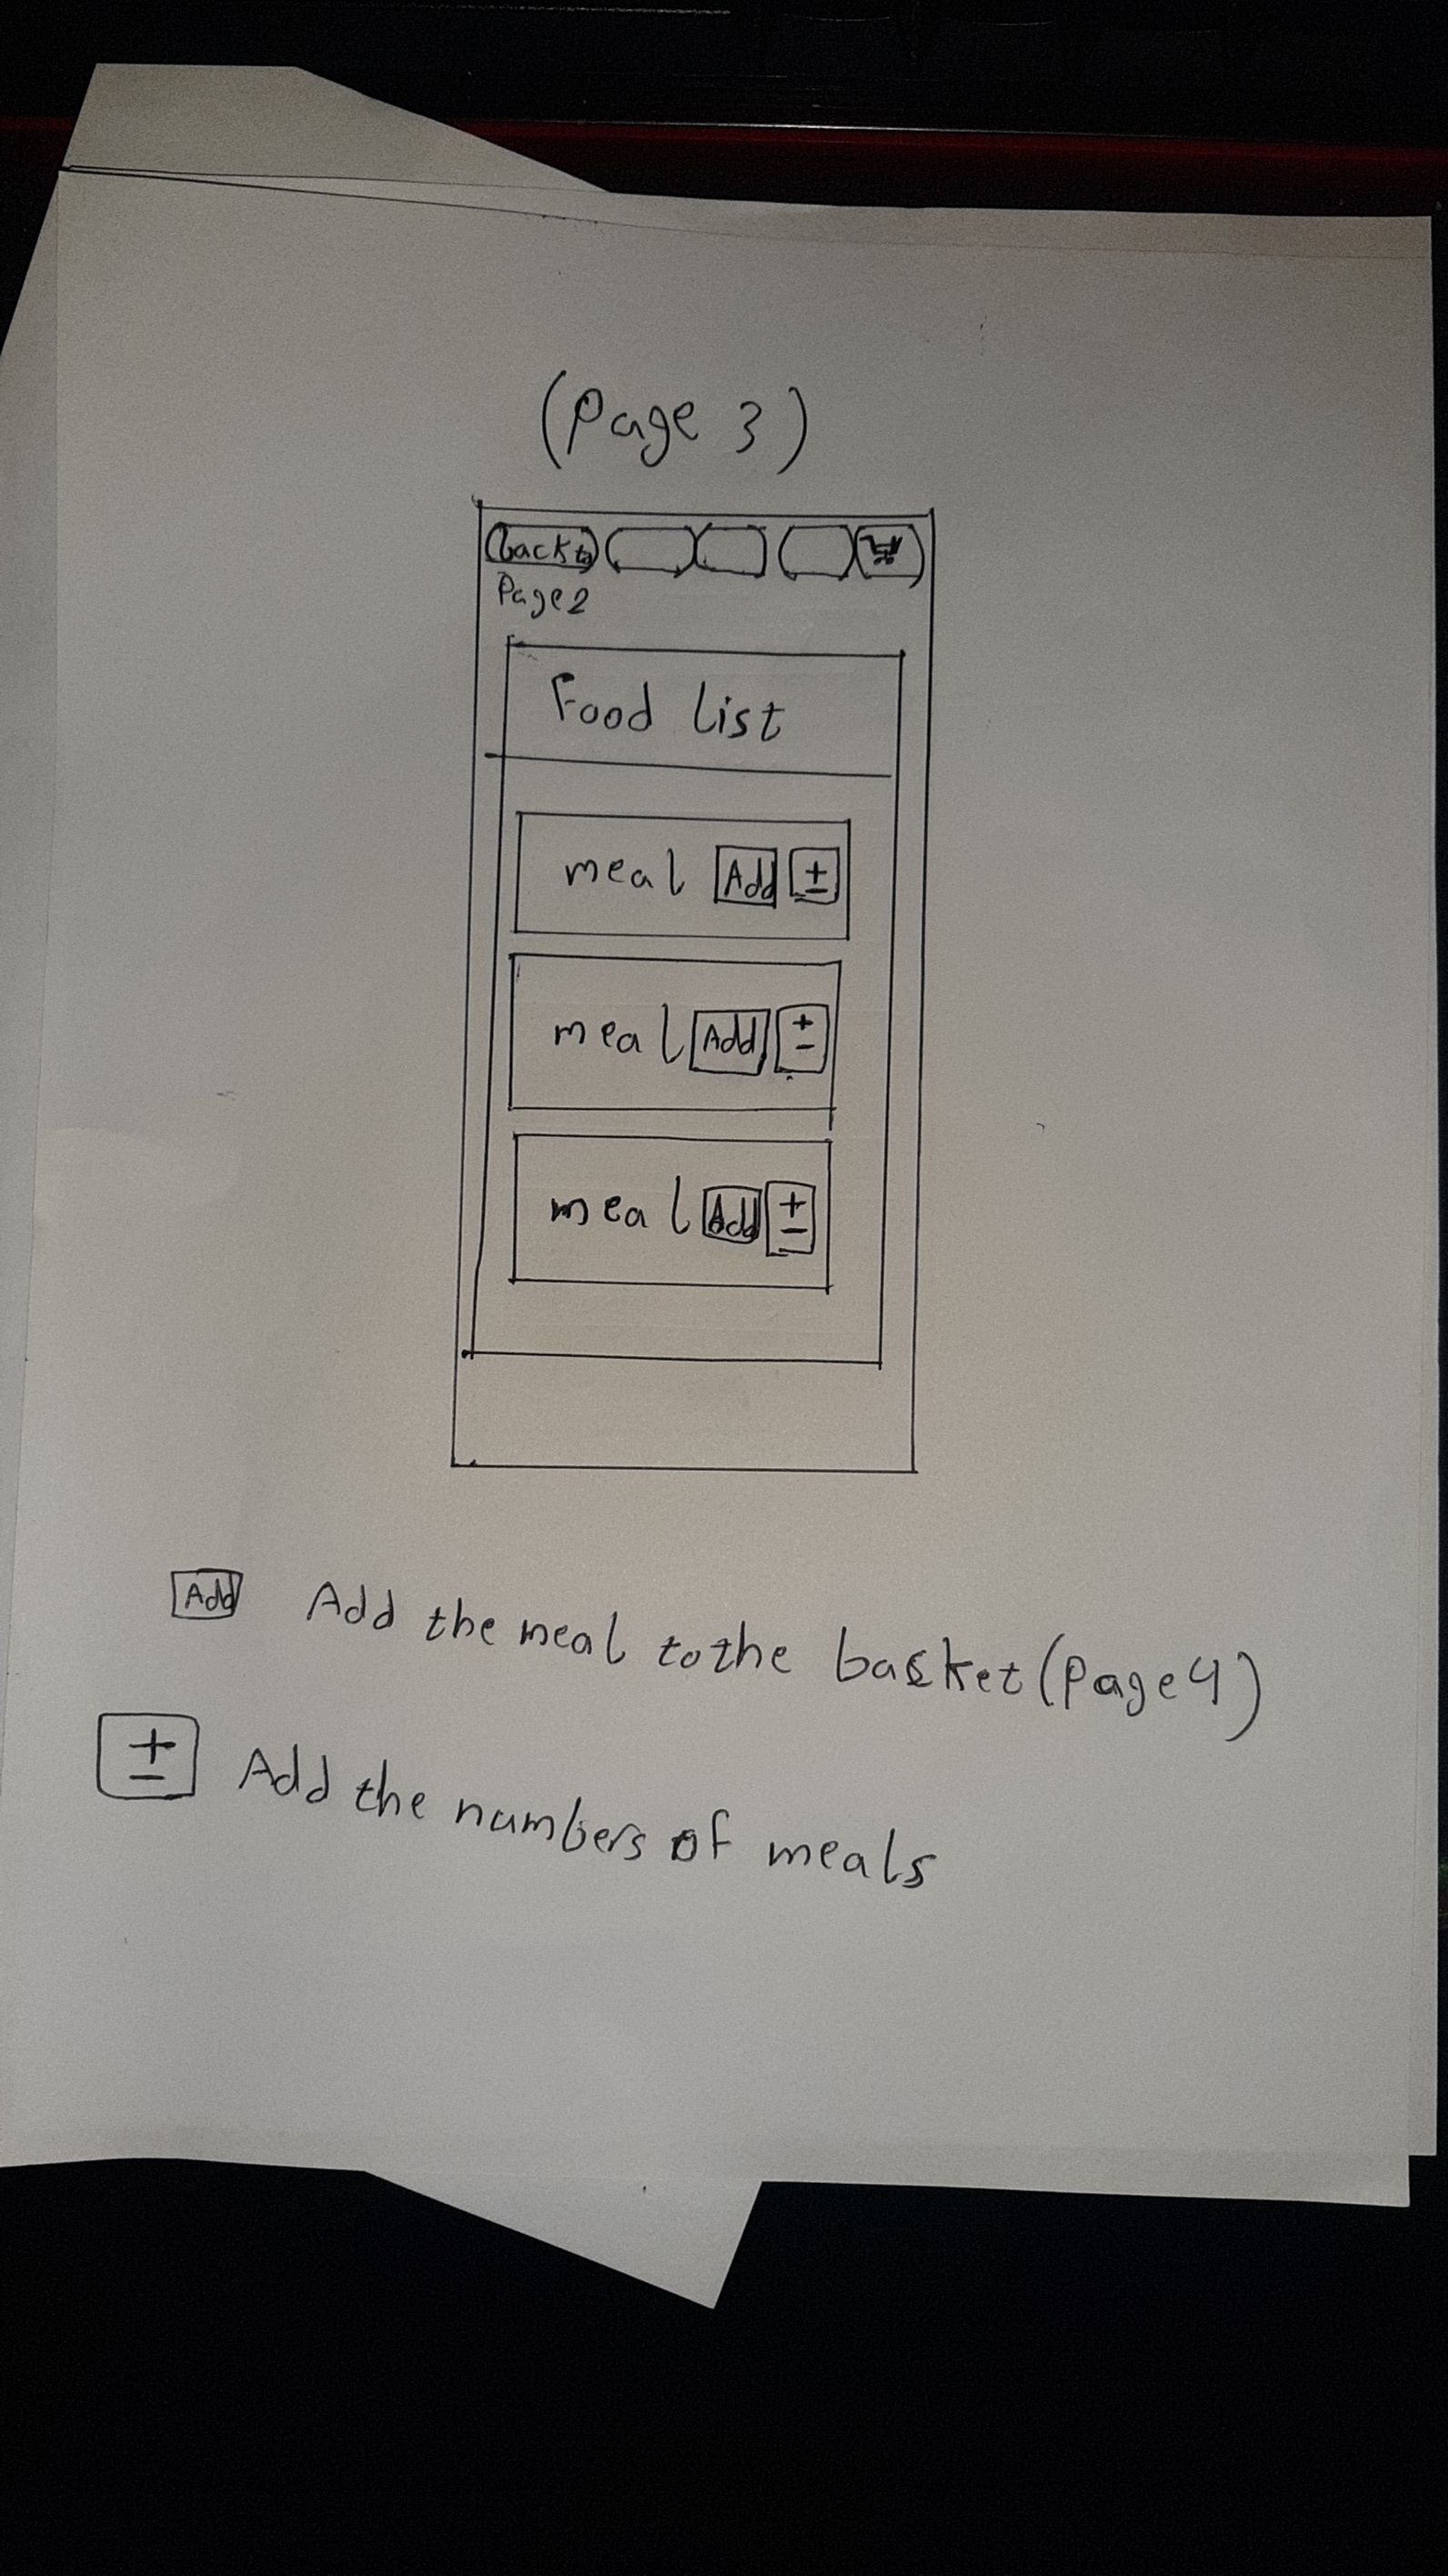 (Page 3)
back to
Page 2
Food List
meal Add +-
meal Add +-
meal Add +-
Add Add the meal to the basket (Page 4)
+- Add the numbers of meals